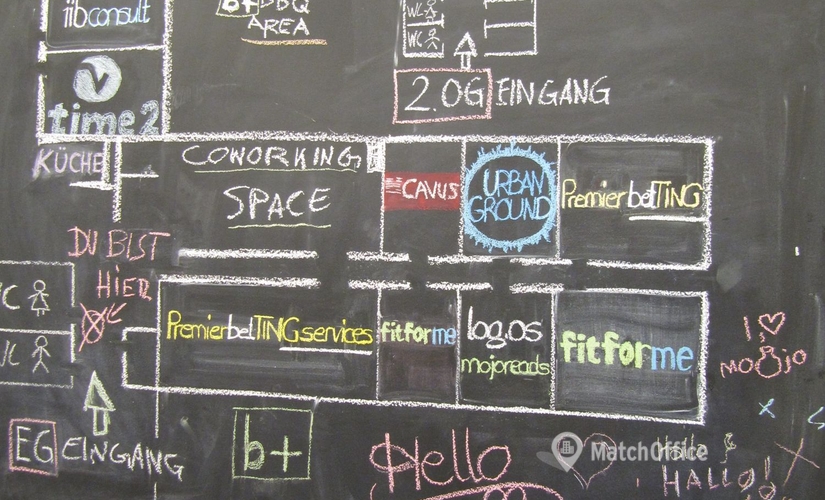 iibconsult
BBQ
AREA
WC
WC
v
time2
2.OG EINGANG
KÜCHE
COWORKING
SPACE
CAVUS
URBAN
GROUND
PremierbetTING
DU BIST
HIER
WC
WC
PremierbetTINGservices
fitforme
log.os
mojoreads
fitforme
I
MOJO
EG EINGANG
b+
Hello
MatchOffice
Hallo
HALLO!